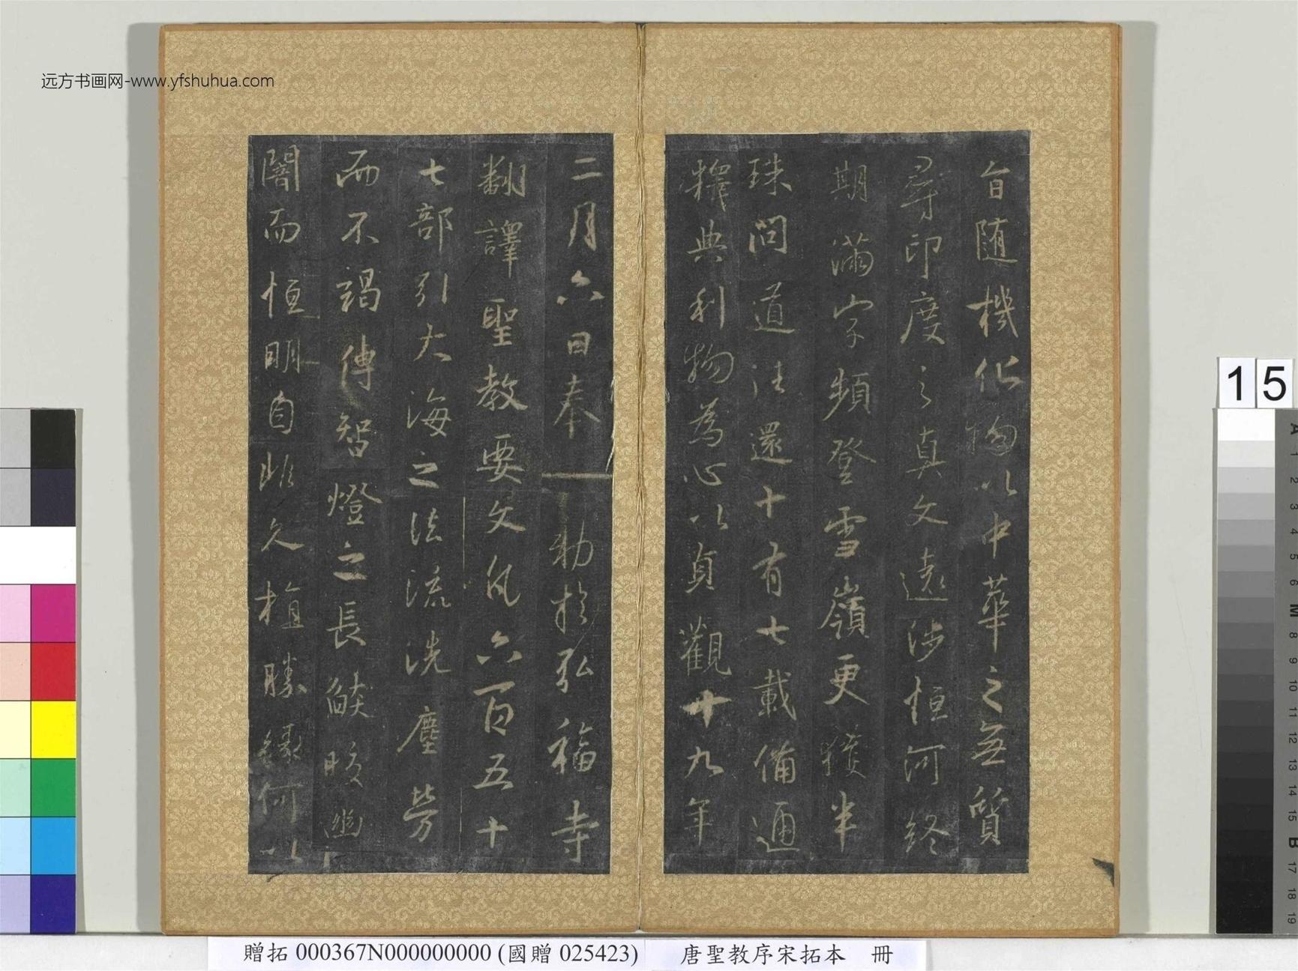 远方书画网-www.yfshuhua.com
旨随機化物以中華之無質
尋印度之真文遠涉恒河終
期滿字頻登雪嶺更獲半
珠問道法還十有七載備通
釋典利物為心以貞觀十九年
二月六日奉 勅於弘福寺
翻譯聖教要文凡六百五十
七部引大海之法流洗塵勞
而不竭傳智燈之長皎幽
闇而恒明自非久植勝緣何以
15
A 1 2 3 4 5 6 M 8 9 10 11 12 13 14 15 B 17 18 19
贈拓 000367N000000000 (國贈 025423) 唐聖教序宋拓本 冊